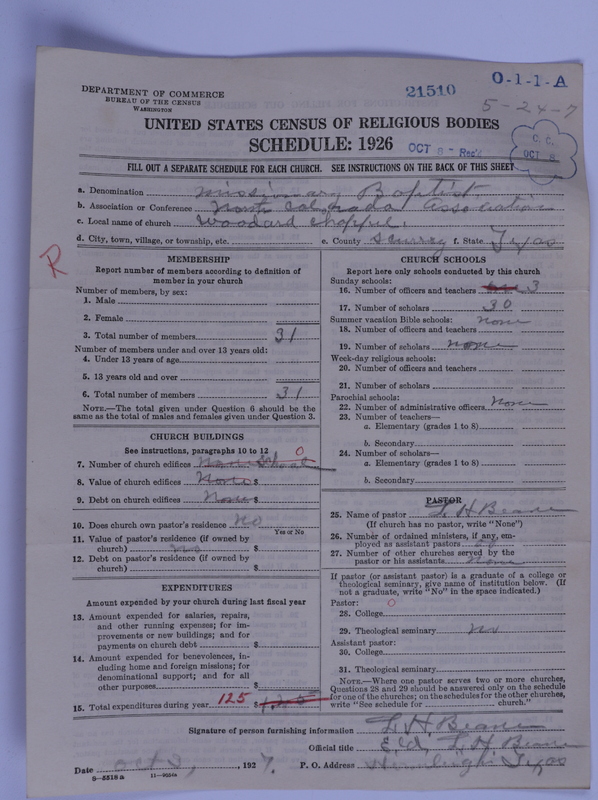 DEPARTMENT OF COMMERCE
BUREAU OF THE CENSUS
WASHINGTON
21510
O-1-1-A
5-24-7
UNITED STATES CENSUS OF RELIGIOUS BODIES
SCHEDULE: 1926
OCT 8 - Rec'd
C. C.
OCT 8
FILL OUT A SEPARATE SCHEDULE FOR EACH CHURCH. SEE INSTRUCTIONS ON THE BACK OF THIS SHEET
a. Denomination Missionary Baptist
b. Association or Conference North Colorado Association
c. Local name of church Woodard Chappul.
d. City, town, village, or township, etc. e. County Scurrey f. State Texas
R
MEMBERSHIP
Report number of members according to definition of
member in your church
Number of members, by sex:
1. Male
2. Female
3. Total number of members 31
Number of members under and over 13 years old:
4. Under 13 years of age
5. 13 years old and over
6. Total number of members 31
NOTE.—The total given under Question 6 should be the
same as the total of males and females given under Question 3.
CHURCH BUILDINGS
See instructions, paragraphs 10 to 12
0
7. Number of church edifices
8. Value of church edifices None $
9. Debt on church edifices None $
10. Does church own pastor's residence No
Yes or No
11. Value of pastor's residence (if owned by
church) no $
12. Debt on pastor's residence (if owned by
church) $
EXPENDITURES
Amount expended by your church during last fiscal year
13. Amount expended for salaries, repairs,
and other running expenses; for im-
provements or new buildings; and for
payments on church debt $
14. Amount expended for benevolences, in-
cluding home and foreign missions; for
denominational support; and for all
other purposes $
15. Total expenditures during year 125 $ 125
CHURCH SCHOOLS
Report here only schools conducted by this church
Sunday schools:
16. Number of officers and teachers 3
17. Number of scholars 30
Summer vacation Bible schools: none
18. Number of officers and teachers
19. Number of scholars none
Week-day religious schools:
20. Number of officers and teachers
21. Number of scholars
Parochial schools:
22. Number of administrative officers none
23. Number of teachers—
a. Elementary (grades 1 to 8)
b. Secondary
24. Number of scholars—
a. Elementary (grades 1 to 8)
b. Secondary
PASTOR
25. Name of pastor L H Beane
(If church has no pastor, write "None")
26. Number of ordained ministers, if any, em-
ployed as assistant pastors
27. Number of other churches served by the
pastor or his assistants None
If pastor (or assistant pastor) is a graduate of a college or
theological seminary, give name of institution below. (If
not a graduate, write "No" in the space indicated.)
Pastor: 0
28. College
29. Theological seminary No
Assistant pastor:
30. College
31. Theological seminary
NOTE.—Where one pastor serves two or more churches,
Questions 28 and 29 should be answered only on the schedule
for one of the churches; on the schedules for the other churches,
write "See schedule for church."
Signature of person furnishing information L H Beane
Official title Eld, L. H. Beane
Date oct 2, , 1927. P. O. Address Texas
8-5518 a 11-9056a